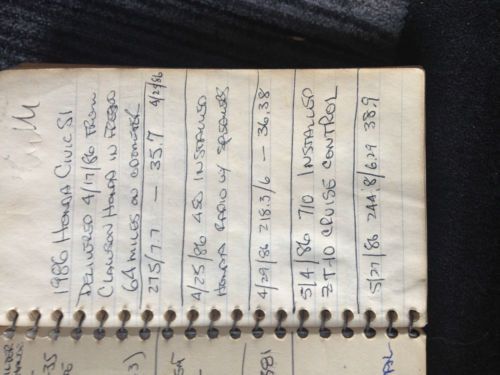 1986 HONDA CIVIC SI
DELIVERED 4/17/86 FROM
CLAWSON HONDA IN FRESNO
64 MILES ON ODOMETER
275/7.7 — 35.7 4/21/86
4/25/86 450 INSTALLED
HONDA RADIO W/ SPEAKERS
4/29/86 218.3/6 — 36.38
5/4/86 710 INSTALLED
ZT10 CRUISE CONTROL
5/27/86 244.8/6.29 38.9
35
3)
381